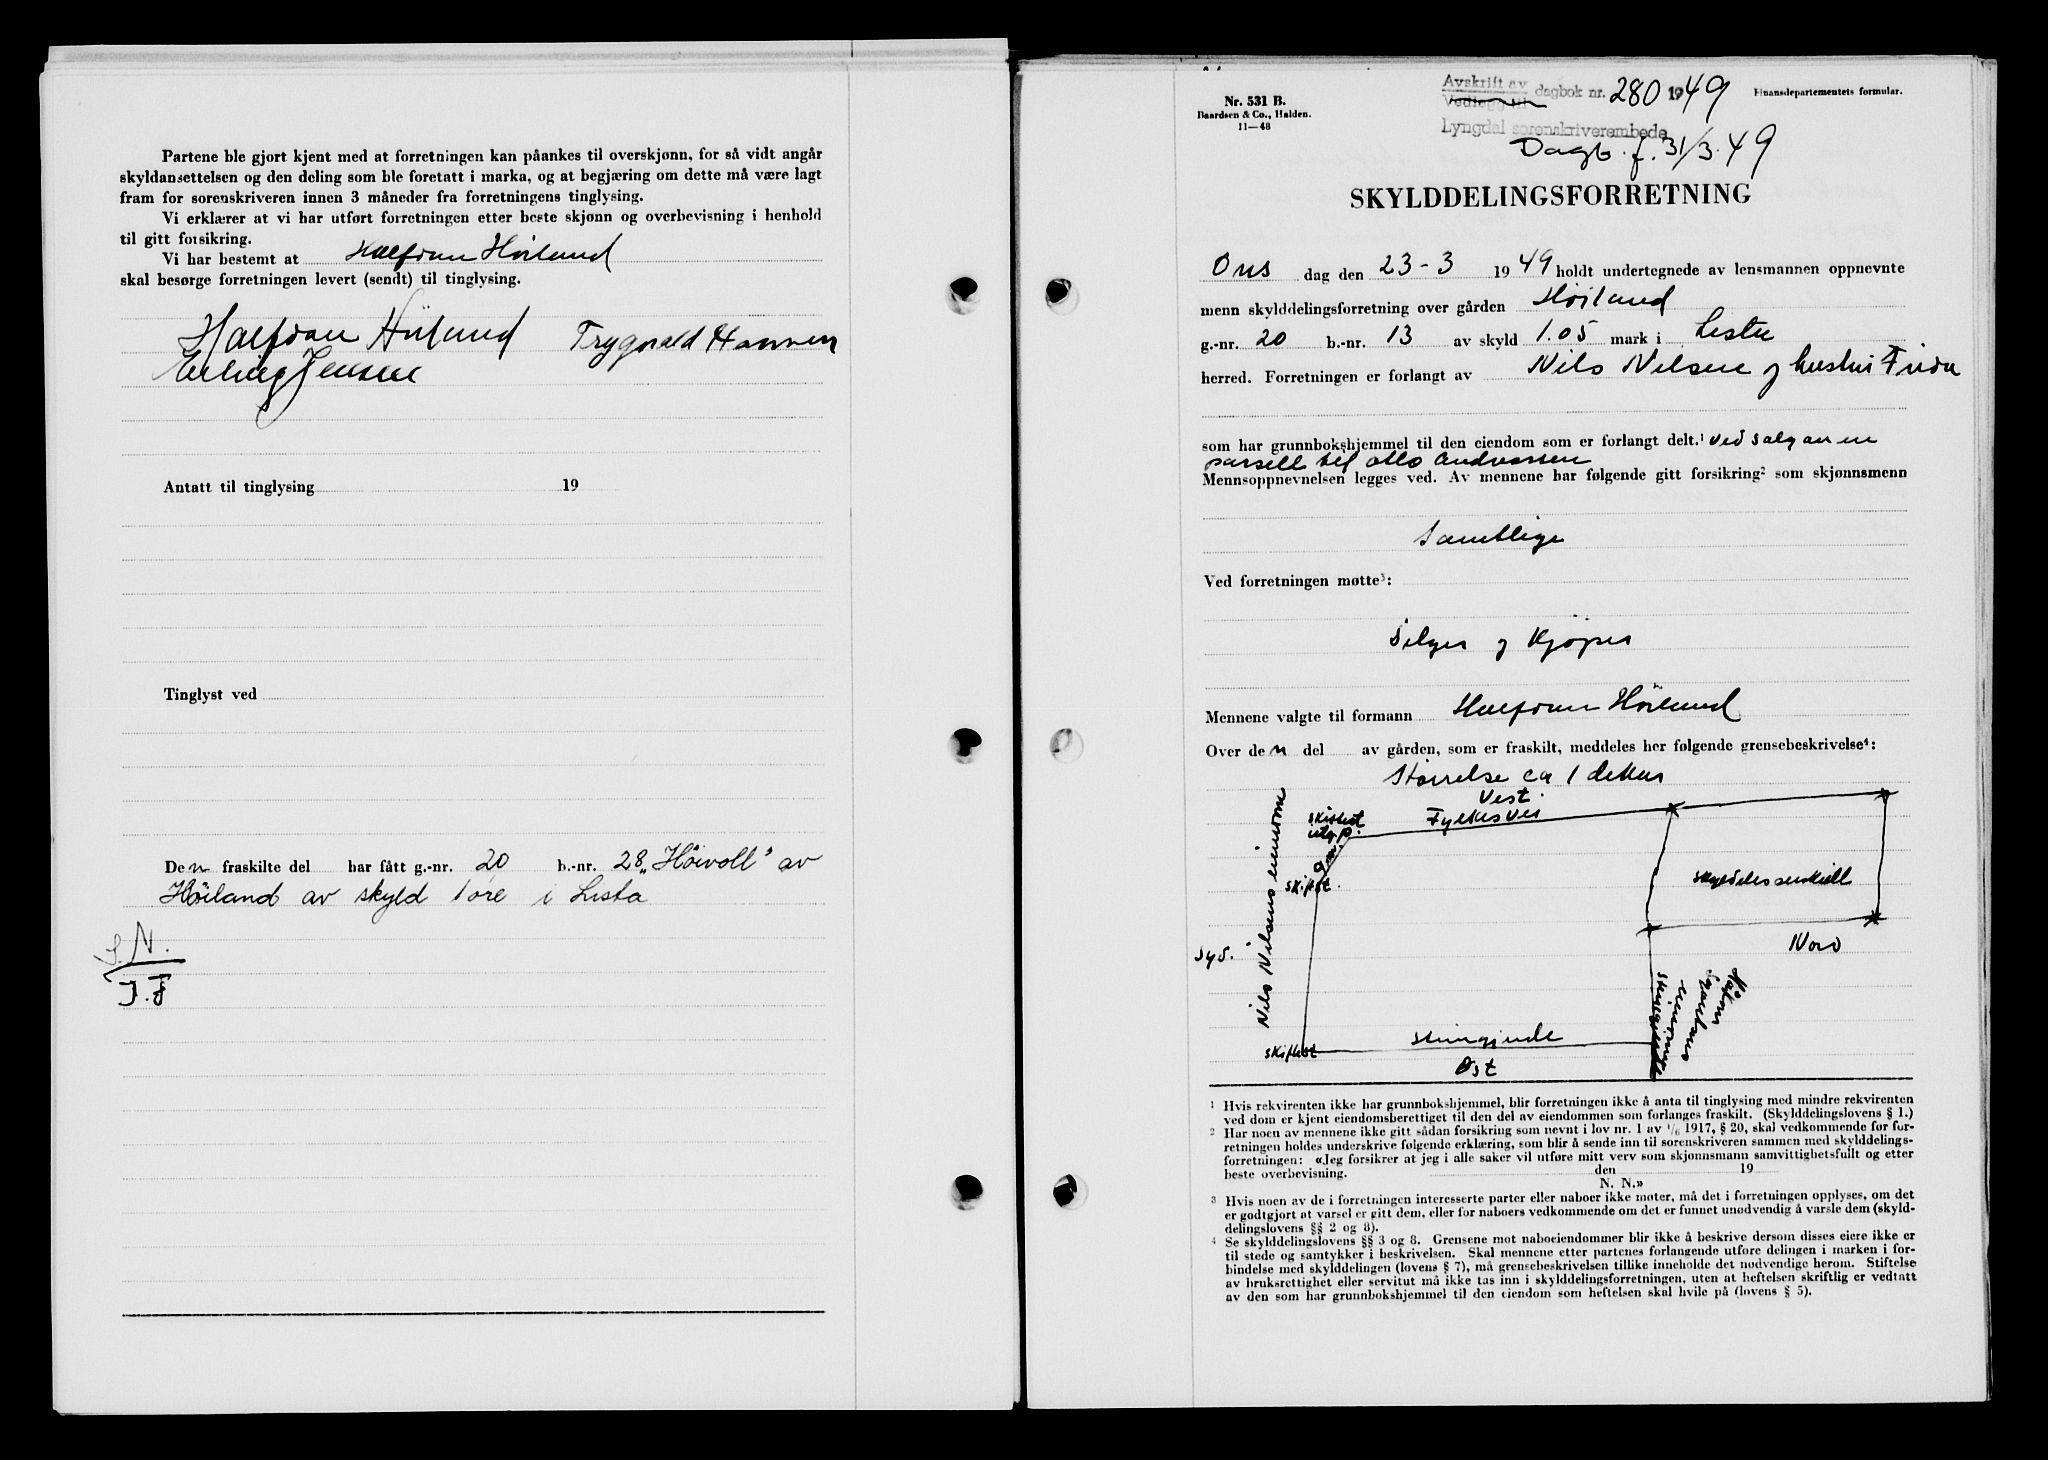 Partene ble gjort kjent med at forretningen kan påankes til overskjønn, for så vidt angår
skyldansettelsen og den deling som ble foretatt i marka, og at begjæring om dette må være lagt
fram for sorenskriveren innen 3 måneder fra forretningens tinglysing.
Vi erklærer at vi har utført forretningen etter beste skjønn og overbevisning i henhold
til gitt forsikring.
Vi har bestemt at Halfdan Høiland
skal besørge forretningen levert (sendt) til tinglysing.
Halfdan Høiland Trygvald Hansen
Erling Jensen
Antatt til tinglysing 19
Tinglyst ved
Den fraskilte del har fått g.-nr. 20 b.-nr. 28 „Höivoll" av
Höiland av skyld 1 øre i Lista
S.N.
J.F
Nr. 531 B.
Baardsen & Co., Halden.
11—48
Avskrift av
Vedlegg til dagbok nr. 280 1949
Lyngdal sorenskriverembede
Finansdepartementets formular.
Dagb. f. 31/3.49
SKYLDDELINGSFORRETNING
Ons dag den 23-3 1949 holdt undertegnede av lensmannen oppnevnte
menn skylddelingsforretning over gården Höiland
g.-nr. 20 b.-nr. 13 av skyld 1.05 mark i Lista
herred. Forretningen er forlangt av Nils Nilsen og hustru Frida
som har grunnbokshjemmel til den eiendom som er forlangt delt.¹ ved salg av en
parsell til Otto Andreassen
Mennsoppnevnelsen legges ved. Av mennene har følgende gitt forsikring² som skjønnsmenn
Samtlige
Ved forretningen møtte³:
Selger og Kjøper
Mennene valgte til formann Halfdan Höiland
Over den del av gården, som er fraskilt, meddeles her følgende grensebeskrivelse⁴:
Størrelse ca 1 dekar
Vest
Fylkesvei
skiftest
utg.p.
9 m.
skiftst.
Nils Nilsens eiendom
Syd.
Nord
skiftest
steingjerde
Øst
eiendom
steingjerde
¹ Hvis rekvirenten ikke har grunnbokshjemmel, blir forretningen ikke å anta til tinglysing med mindre rekvirenten
ved dom er kjent eiendomsberettiget til den del av eiendommen som forlanges fraskilt. (Skylddelingslovens § 1.)
² Har noen av mennene ikke gitt sådan forsikring som nevnt i lov nr. 1 av ¹/₆ 1917, § 20, skal vedkommende før for-
retningen holdes underskrive følgende erklæring, som blir å sende inn til sorenskriveren sammen med skylddelings-
forretningen: «Jeg forsikrer at jeg i alle saker vil utføre mitt verv som skjønnsmann samvittighetsfullt og etter
beste overbevisning. den 19
N. N.»
³ Hvis noen av de i forretningen interesserte parter eller naboer ikke møter, må det i forretningen opplyses, om det
er godtgjort at varsel er gitt dem, eller for naboers vedkommende om det er funnet unødvendig å varsle dem (skyld-
delingslovens §§ 2 og 8).
⁴ Se skylddelingslovens §§ 3 og 8. Grensene mot naboeiendommer blir ikke å beskrive dersom disses eiere ikke er
til stede og samtykker i beskrivelsen. Skal mennene etter partenes forlangende utføre delingen i marken i for-
bindelse med skylddelingen (lovens § 7), må grensebeskrivelsen tillike inneholde det nødvendige herom. Stiftelse
av bruksrettighet eller servitut må ikke tas inn i skylddelingsforretningen, uten at heftelsen skriftlig er vedtatt
av den som har grunnbokshjemmel til den eiendom som heftelsen skal hvile på (lovens § 5).